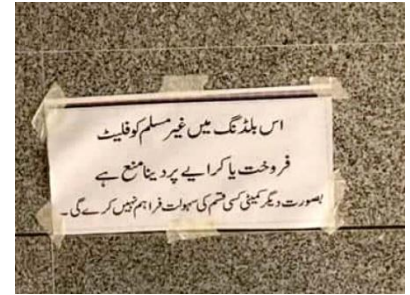 اس بلڈنگ میں غیر مسلم کو فلیٹ
فروخت یا کرایے پر دینا منع ہے
بصورت دیگر کمیٹی کسی قسم کی سہولت فراہم نہیں کرے گی۔